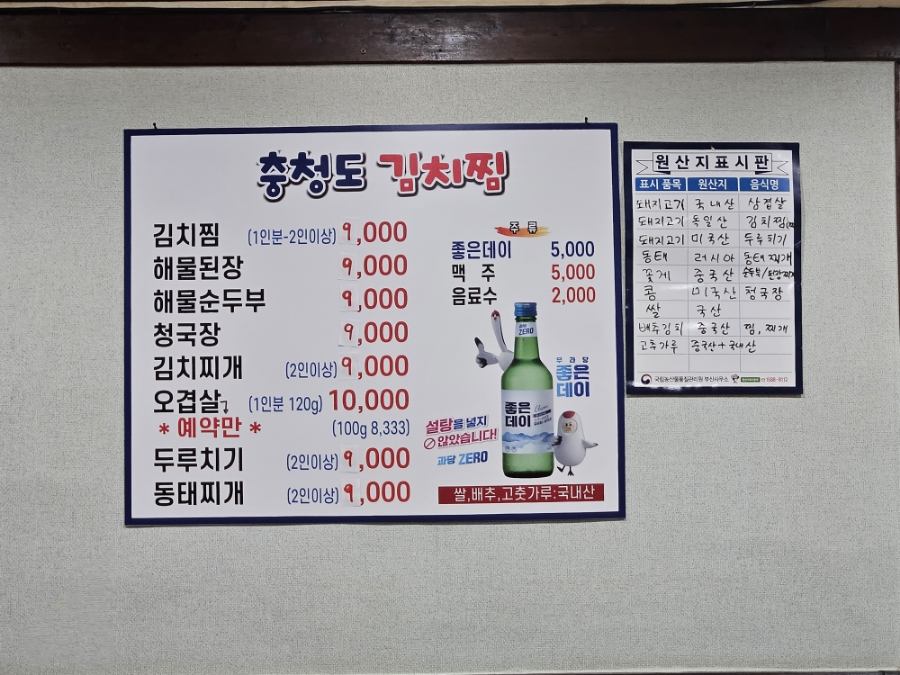 충청도 김치찜
김치찜 (1인분-2인이상) 9,000
해물된장 9,000
해물순두부 9,000
청국장 9,000
김치찌개 (2인이상) 9,000
오겹살 (1인분 120g) 10,000
* 예약만 * (100g 8,333)
두루치기 (2인이상) 9,000
동태찌개 (2인이상) 9,000
주 류
좋은데이 5,000
맥 주 5,000
음료수 2,000
과당
ZERO
무과당
좋은
데이
좋은
데이
설탕을 넣지
않았습니다!
과당 ZERO
쌀,배추,고춧가루:국내산
원산지표시판
표시 품목 원산지 음식명
돼지고기 국내산 삼겹살
돼지고기 독일산 김치찜
돼지고기 미국산 두루치기
동태 러시아 동태찌개
꽃게 중국산 순두부/된장찌개
콩 미국산 청국장
쌀 국산
배추김치 중국산 찜, 찌개
고추가루 중국산+국내산
국립농산물품질관리원 부산사무소